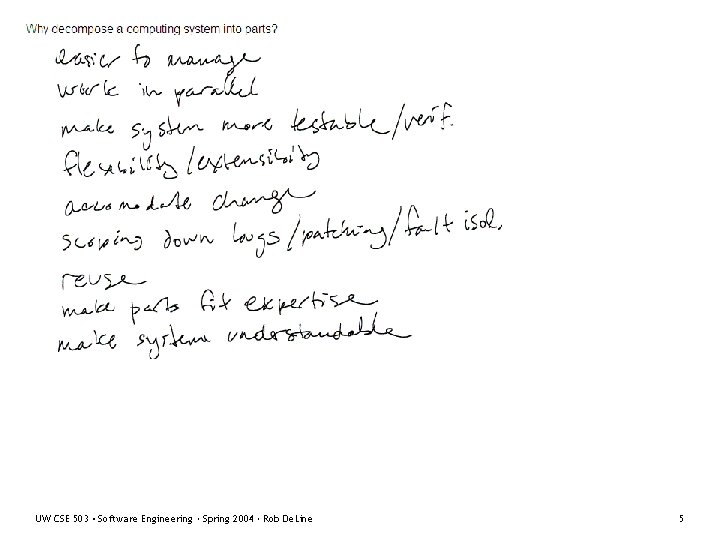 Why decompose a computing system into parts?
easier to manage
work in parallel
make system more testable/verif.
flexibility/extensibility
accomodate change
scoping down bugs/patching/fault isol.
reuse
make parts fit expertise
make system understandable
UW CSE 503 • Software Engineering • Spring 2004 • Rob DeLine 5